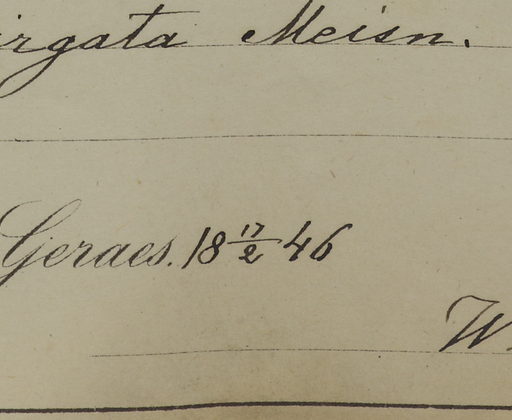 irgata Meisn.
Geraes. 18 17/2 46
W.